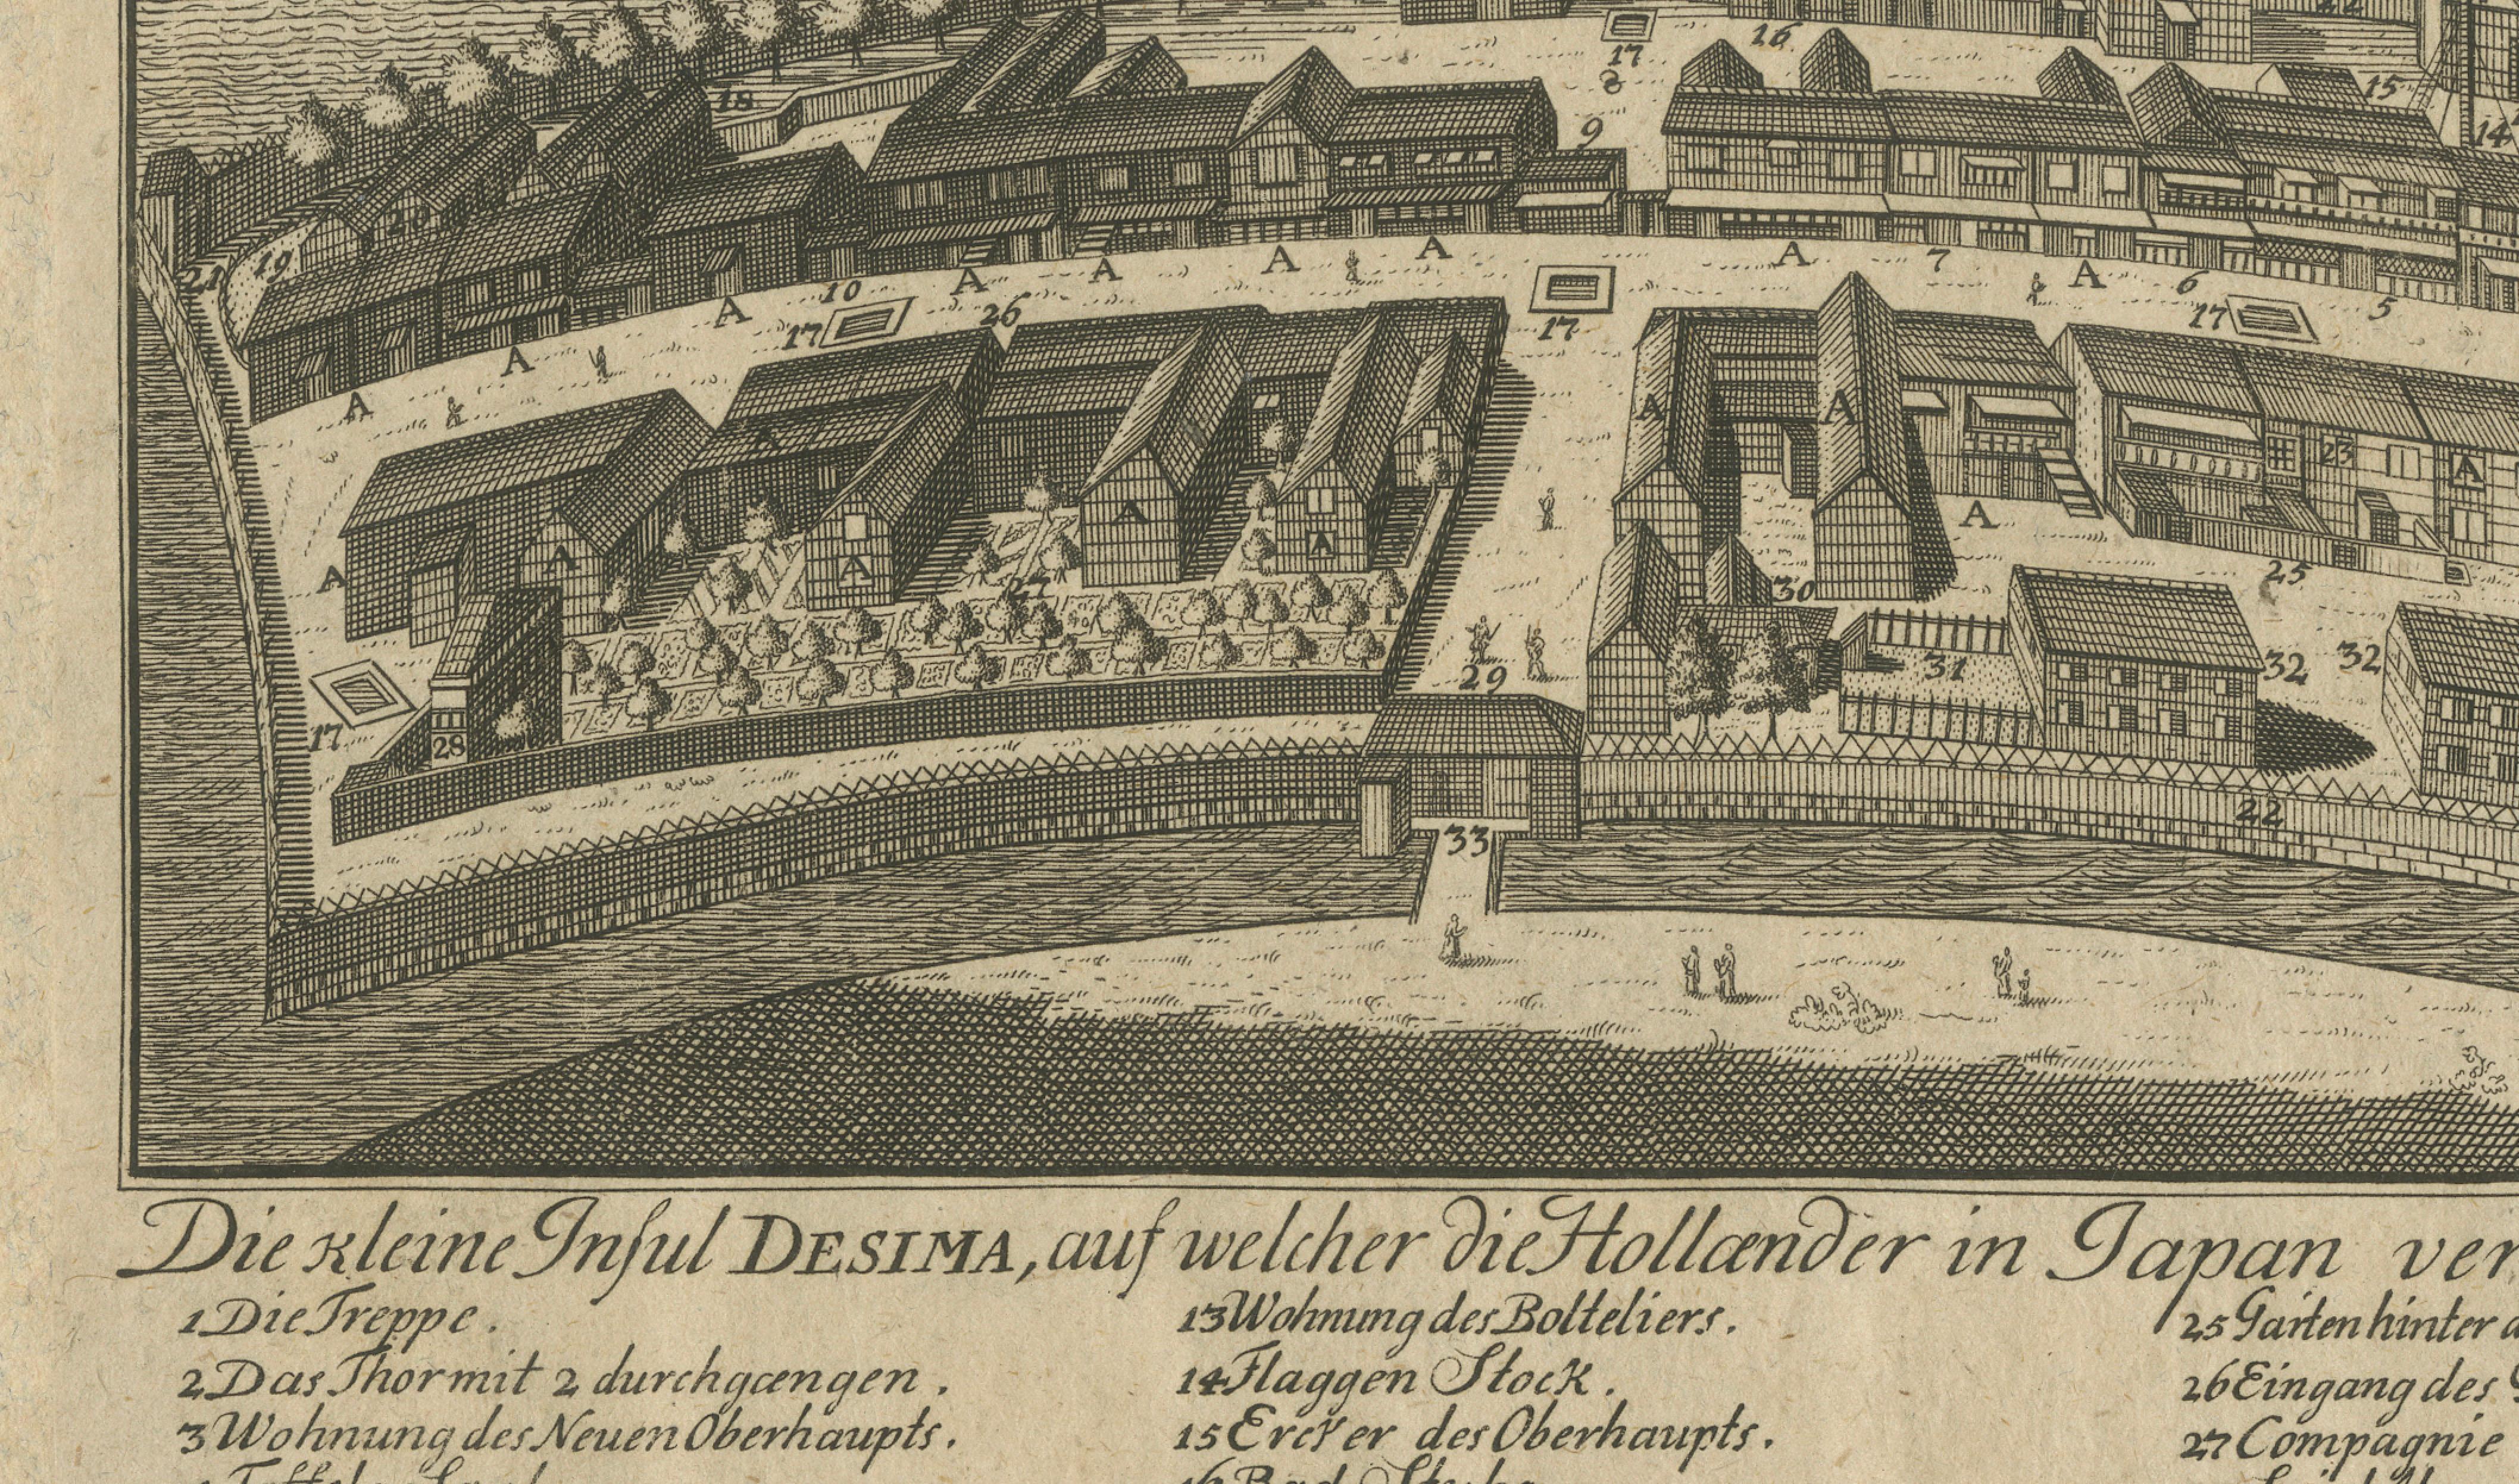 22
17
16
8
15
18
14
9
20
21
19
A
A
A
A
A
7
A
10
A
A
6
26
17
A
17
17
5
A
A
A
A
23
A
A
A
A
A
A
A
25
27
30
32
32
31
29
17
28
22
33
Die kleine Inſul DESIMA, auf welcher die Hollænder in Iapan ver
1 Die Treppe.
13 Wohnung des Bolteliers.
25 Garten hinter d
2 Das Thor mit 2 durchgængen.
14 Flaggen Stock.
26 Eingang des
3 Wohnung des Neuen Oberhaupts.
15 Ercker des Oberhaupts.
27 Compagnie